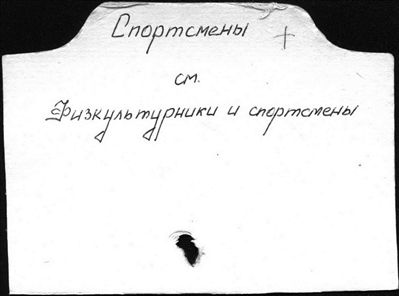 Спортсмены +
см.
Физкультурники и спортсмены